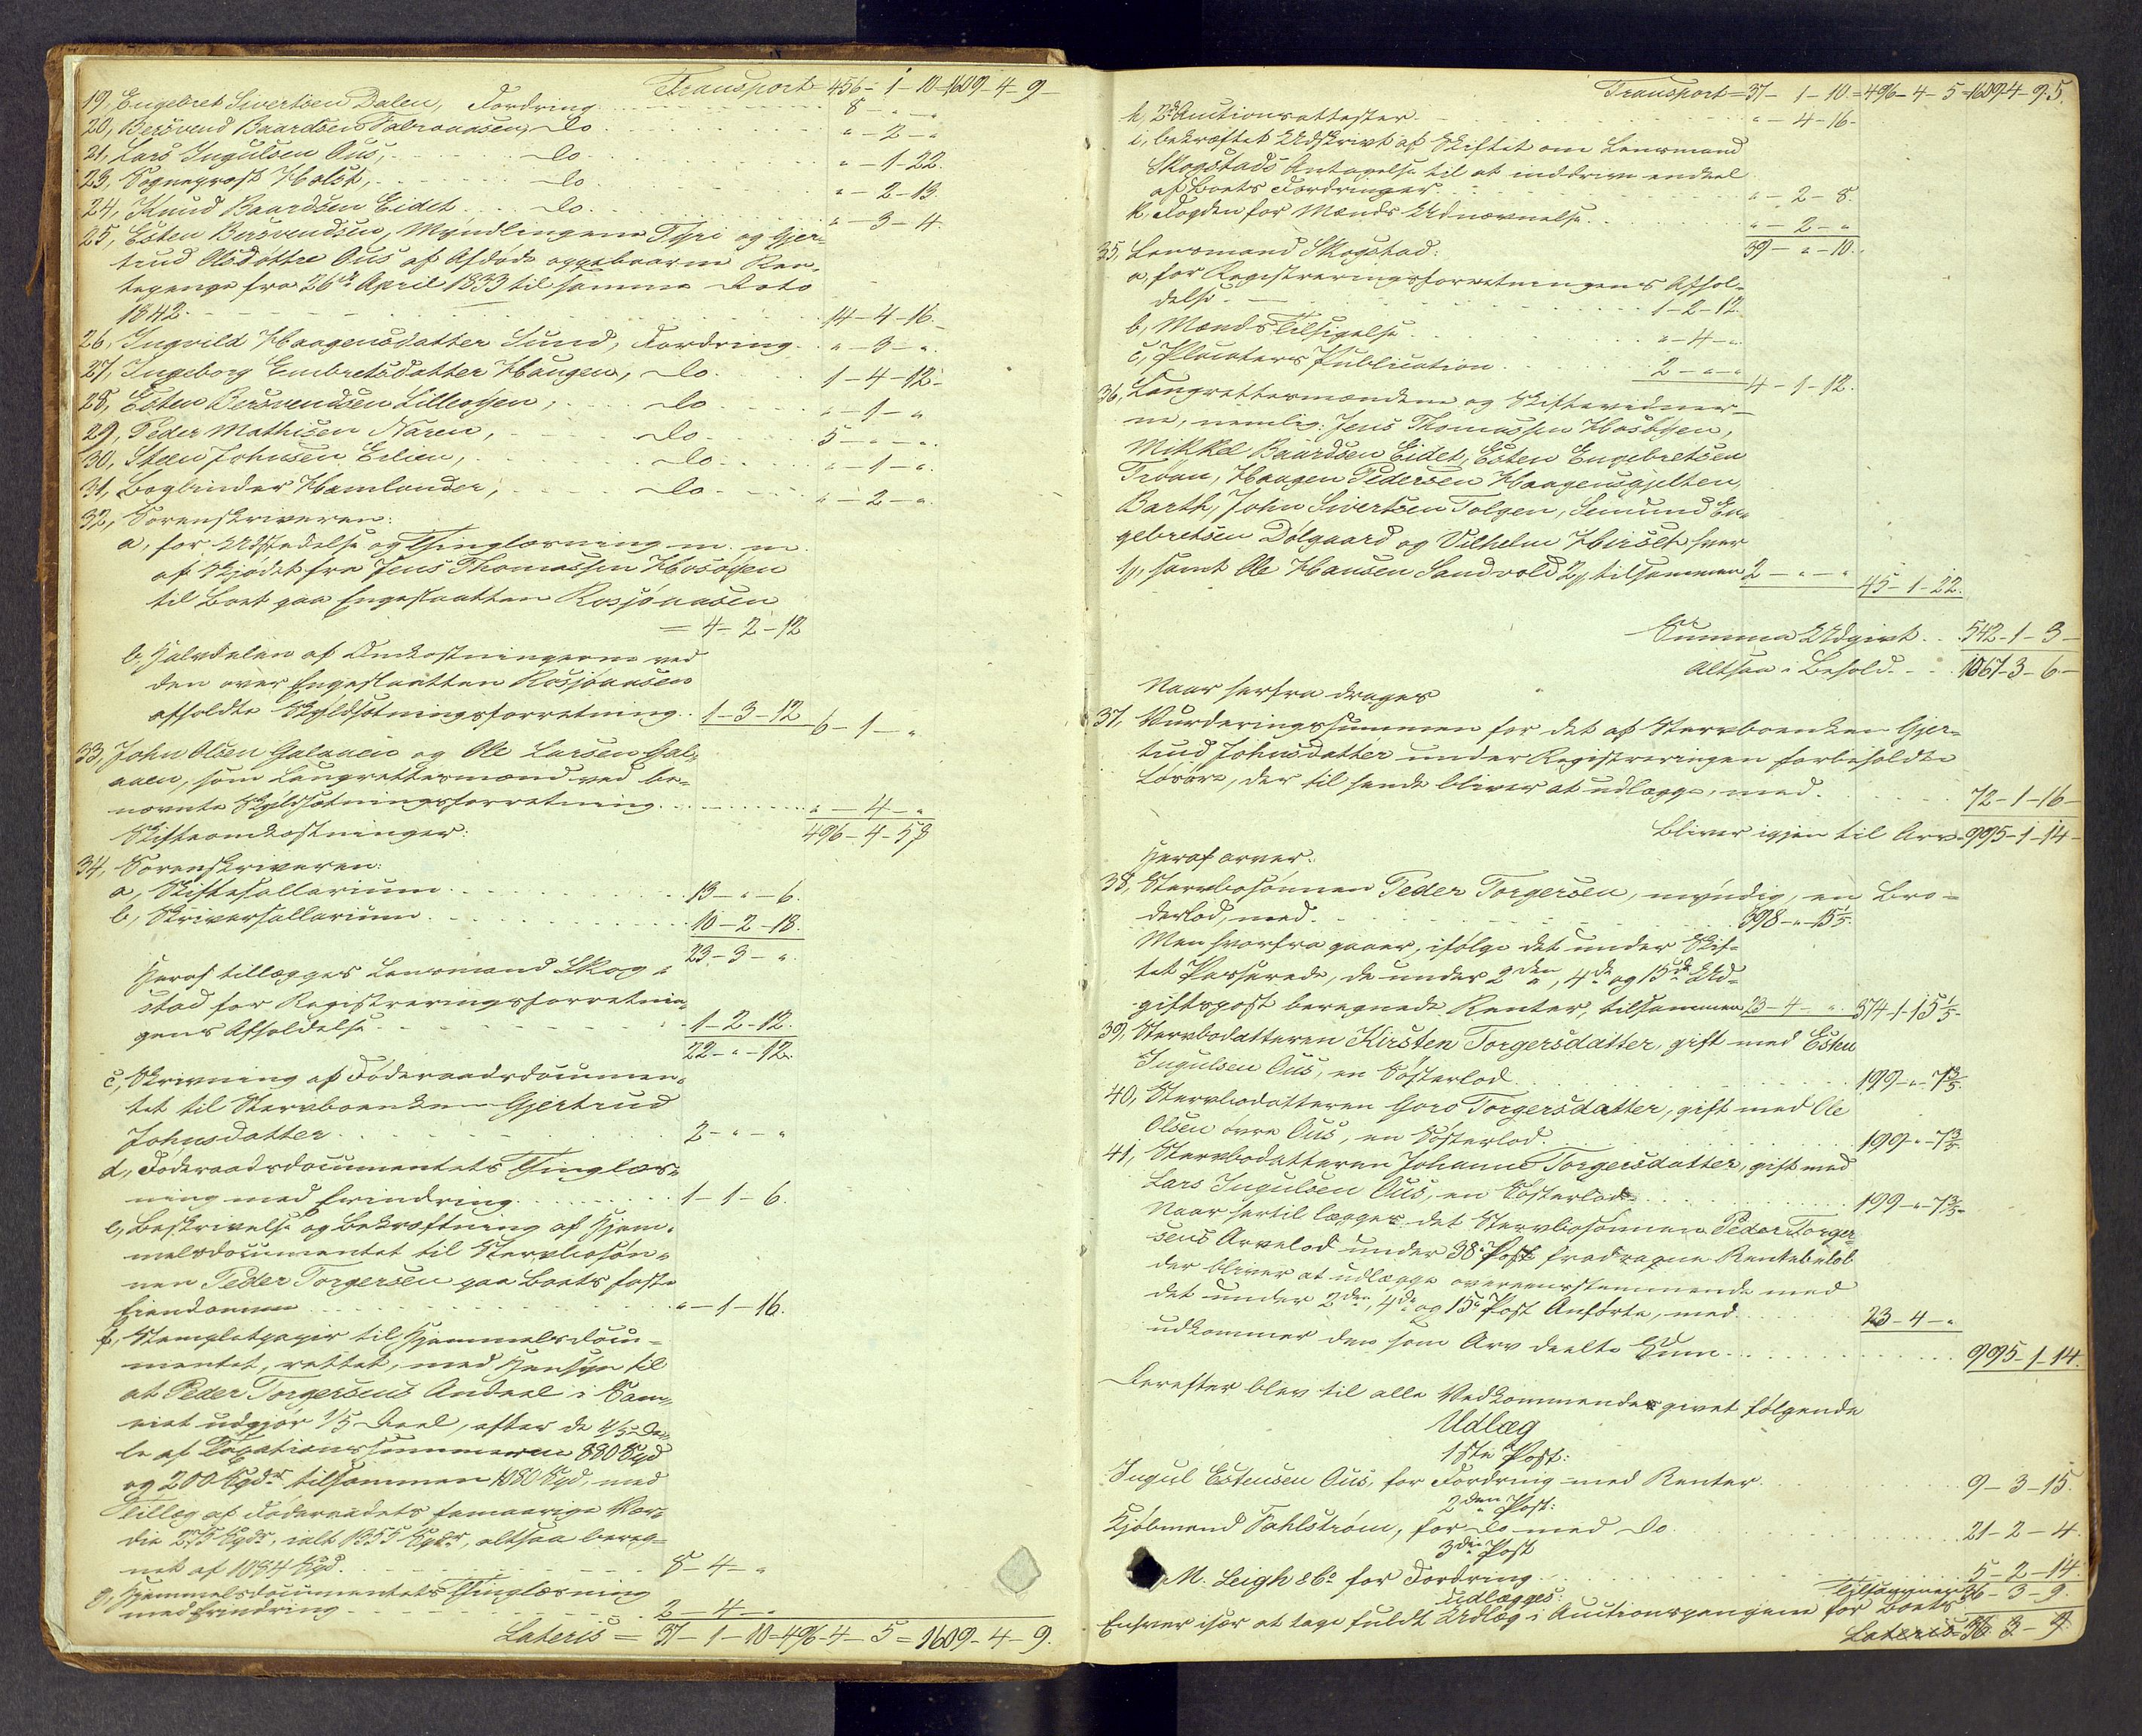 Transport 456-1-10-1609-4-9-
19, Engebret Sivertsen Dalen, Fordring 8-"-"
20, Bersvend Baardsen do "-2-"
21, Lars Ingulsen Ous, do "-1-22.
23, Sogneprest Holst, do "-2-13
24, Knud Baardsen Eidet do "-3-4.
25, Esten Bersvendsen, Myndlingene Tyri og Gjer-
trud Olsdøttre Ous af Afdøde oppebaarne Ren-
tepenge fra 26de April 1833 til samme Dato
1842. 14-4-16.
26, Ingvild Haagensdatter Sund, Fordring "-3-".
27, Ingeborg Embretsdatter Haugen, do 1-4-12-
28, Esten Bersvendsen Lilleøyen, do "-1-"
29, Peder Mathisen Nåren, do 5-"-".
30, Steen Johnsen Eden, do "-1-".
31, Bogbinder Hamlander, do "-2-".
32, Sorenskriveren:
a, for Udstedelse og Thinglæsning m. m.
af Skjødet fra Jens Thomassen Hosøyen
til Boet paa Engeslaatten Rosjøaasen
= 4-2-12
b, Halvdelen af Omkostningerne ved
den over Engeslaatten Rosjøaasen
afholdte Skyldsætningsforretning. 1-3-12 6-1-"
33, John Olsen Galaaen og Ole Larsen Gal-
aaen, som Laugrettesmænd ved be-
nævnte Skyldsætningsforretning. "-4-"
Skifteomkostninger: 496-4-5
34, Sorenskriveren:
a, Skiftesallarium 13-"-6.
b, Skriversallarium 10-2-18.
23-3-".
Heraf tillægges Lensmand Skog-
stad for Registreringsforretnin-
gens Afholdelse 1-2-12.
22-"-12.
c, Skrivning af Føderaadsdocumen-
tet til Stervboenken Gjertrud
Johnsdatter 2-"-"
d, Føderaadsdocumentets Thinglæs-
ning med Erindring 1-1-6.
e, Beskrivelse og Bekræftning af Hjem-
melsdocumentet til Stervbosøn-
nen Peder Torgersen paa Boets faste
Eiendomme "-1-16.
f, Stemplet papir til Hjemmelsdocu-
mentet, rettet, med Hensyn til
at Peder Torgersens Andeel i
udgjør 1/5 Deel, efter de 4/5 De-
le af Taxationssummerne 880 Spd
og 200 Spdr tilsammen 1080 Spd, med
Tillæg af Føderaadets femaarige Vær-
die 275 Spdr, ialt 1355 Spdr, altsaa bereg-
net af 1084 Spd. 8-4-"
g, Hjemmelsdocumentets Thinglæsning
med Erindring 2-4-"
Lateris = 37-1-10=496-4-5=1609-4-9.
Transport=37-1-10.=496-4-5=1609-4-9.5.
h, 2de Auctionsattester. "-4-16-
i, bekræftet Udskrivt af Skiftet om Lensmand
Skogstads Antagelse til at inddrive endeel
af Boets Fordringer "-2-8.
k, Fogden for Mænds Udnævnelse. "-2-"
39-"-10.
35, Lensmand Skogstad:
a, for Registreringsforretningens Afhol-
delse 1-2-12.
b, Mænds Tilsigelse "-4-".
c, Placaters Publication 2-"-" 4-1-12.
36, Laugrettesmændene og Skiftevidner-
ne, nemlig: Jens Thomassen Hosøyen,
Mikkel Baardsen Eidet, Esten Engebretsen
Trøan, Haagen Pedersen Haagensgjelten,
Barth, John Sivertsen Tolgen, Semund En-
gebretsen Dølgaard og Vilhelm Hirsch hver
1/, samt Ole Hansen Sandvold 2/ tilsammen 2-"-" 45-1-22.
Summa Udgivt 542-1-3-
Altsaa i Behold 1067-3-6-
Naar herfra drages
37, Vurderingssummen for det af Stervboenken Gjer-
trud Johnsdatter under Registreringen forbeholdte
Løsøre, der til hende bliver at udlægge, med 72-1-16-
Bliver igjen til Arv 995-1-14-
Heraf arver:
38, Stervbosønnen Peder Torgersen, myndig, en Bro-
derlod, med 398-"-15 1/5.
Men hvorfra gaaer, ifølge det under Skif-
tet Passerede, de under 2den, 4de og 15de Ud-
giftspost beregnede Renter, tilsammen 23-4-". 374-1-15 1/5-
39, Stervbodatteren Kirsten Torgersdatter, gift med Esten
Ingulsen Ous, en Søsterlod 199-"-7 3/5.
40, Stervbodatteren Goro Torgersdatter, gift med Ole
Olsen øvre Ous, en Søsterlod. 199-"-7 3/5
41, Stervbodatteren Johanne Torgersdatter, gift med
Lars Ingulsen Ous, en Søsterlod 199-"-7 3/5-
Naar hertil lægges det Stervbosønnen Peder Torger-
sens Arvelod under 38te Post fradragne Rentebeløb
der bliver at udlægge overeensstemmende med
det under 2den, 4de og 15de Post Anførte, med 23-4-"
udkommer den som Arv deelte Sum 995-1-14.
Derefter blev til alle Vedkommende givet følgende
Udlæg
1ste Post:
Ingul Estensen Ous, for Fordring med Renter 9-3-15.
2den Post:
Kjøbmand Sahlstrøm, for do med do 21-2-4.
3die Post
M. Leigh & Co for Fordring 5-2-14.
Tilsammen 36-3-9.
udlægges:
Enhver især at tage fuldt Udlæg i Auctionspengene for Boets
Lateris=36-3-9.